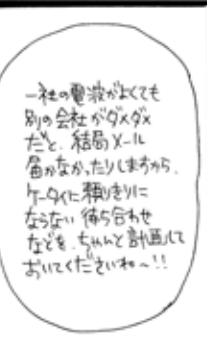 一社の電波がよくても
別の会社がダメダメ
だと、結局メール
届かなかったりしますから、
ケータイに頼りきりに
ならない待ち合わせ
などを、ちゃんと計画して
おいてくださいね〜!!